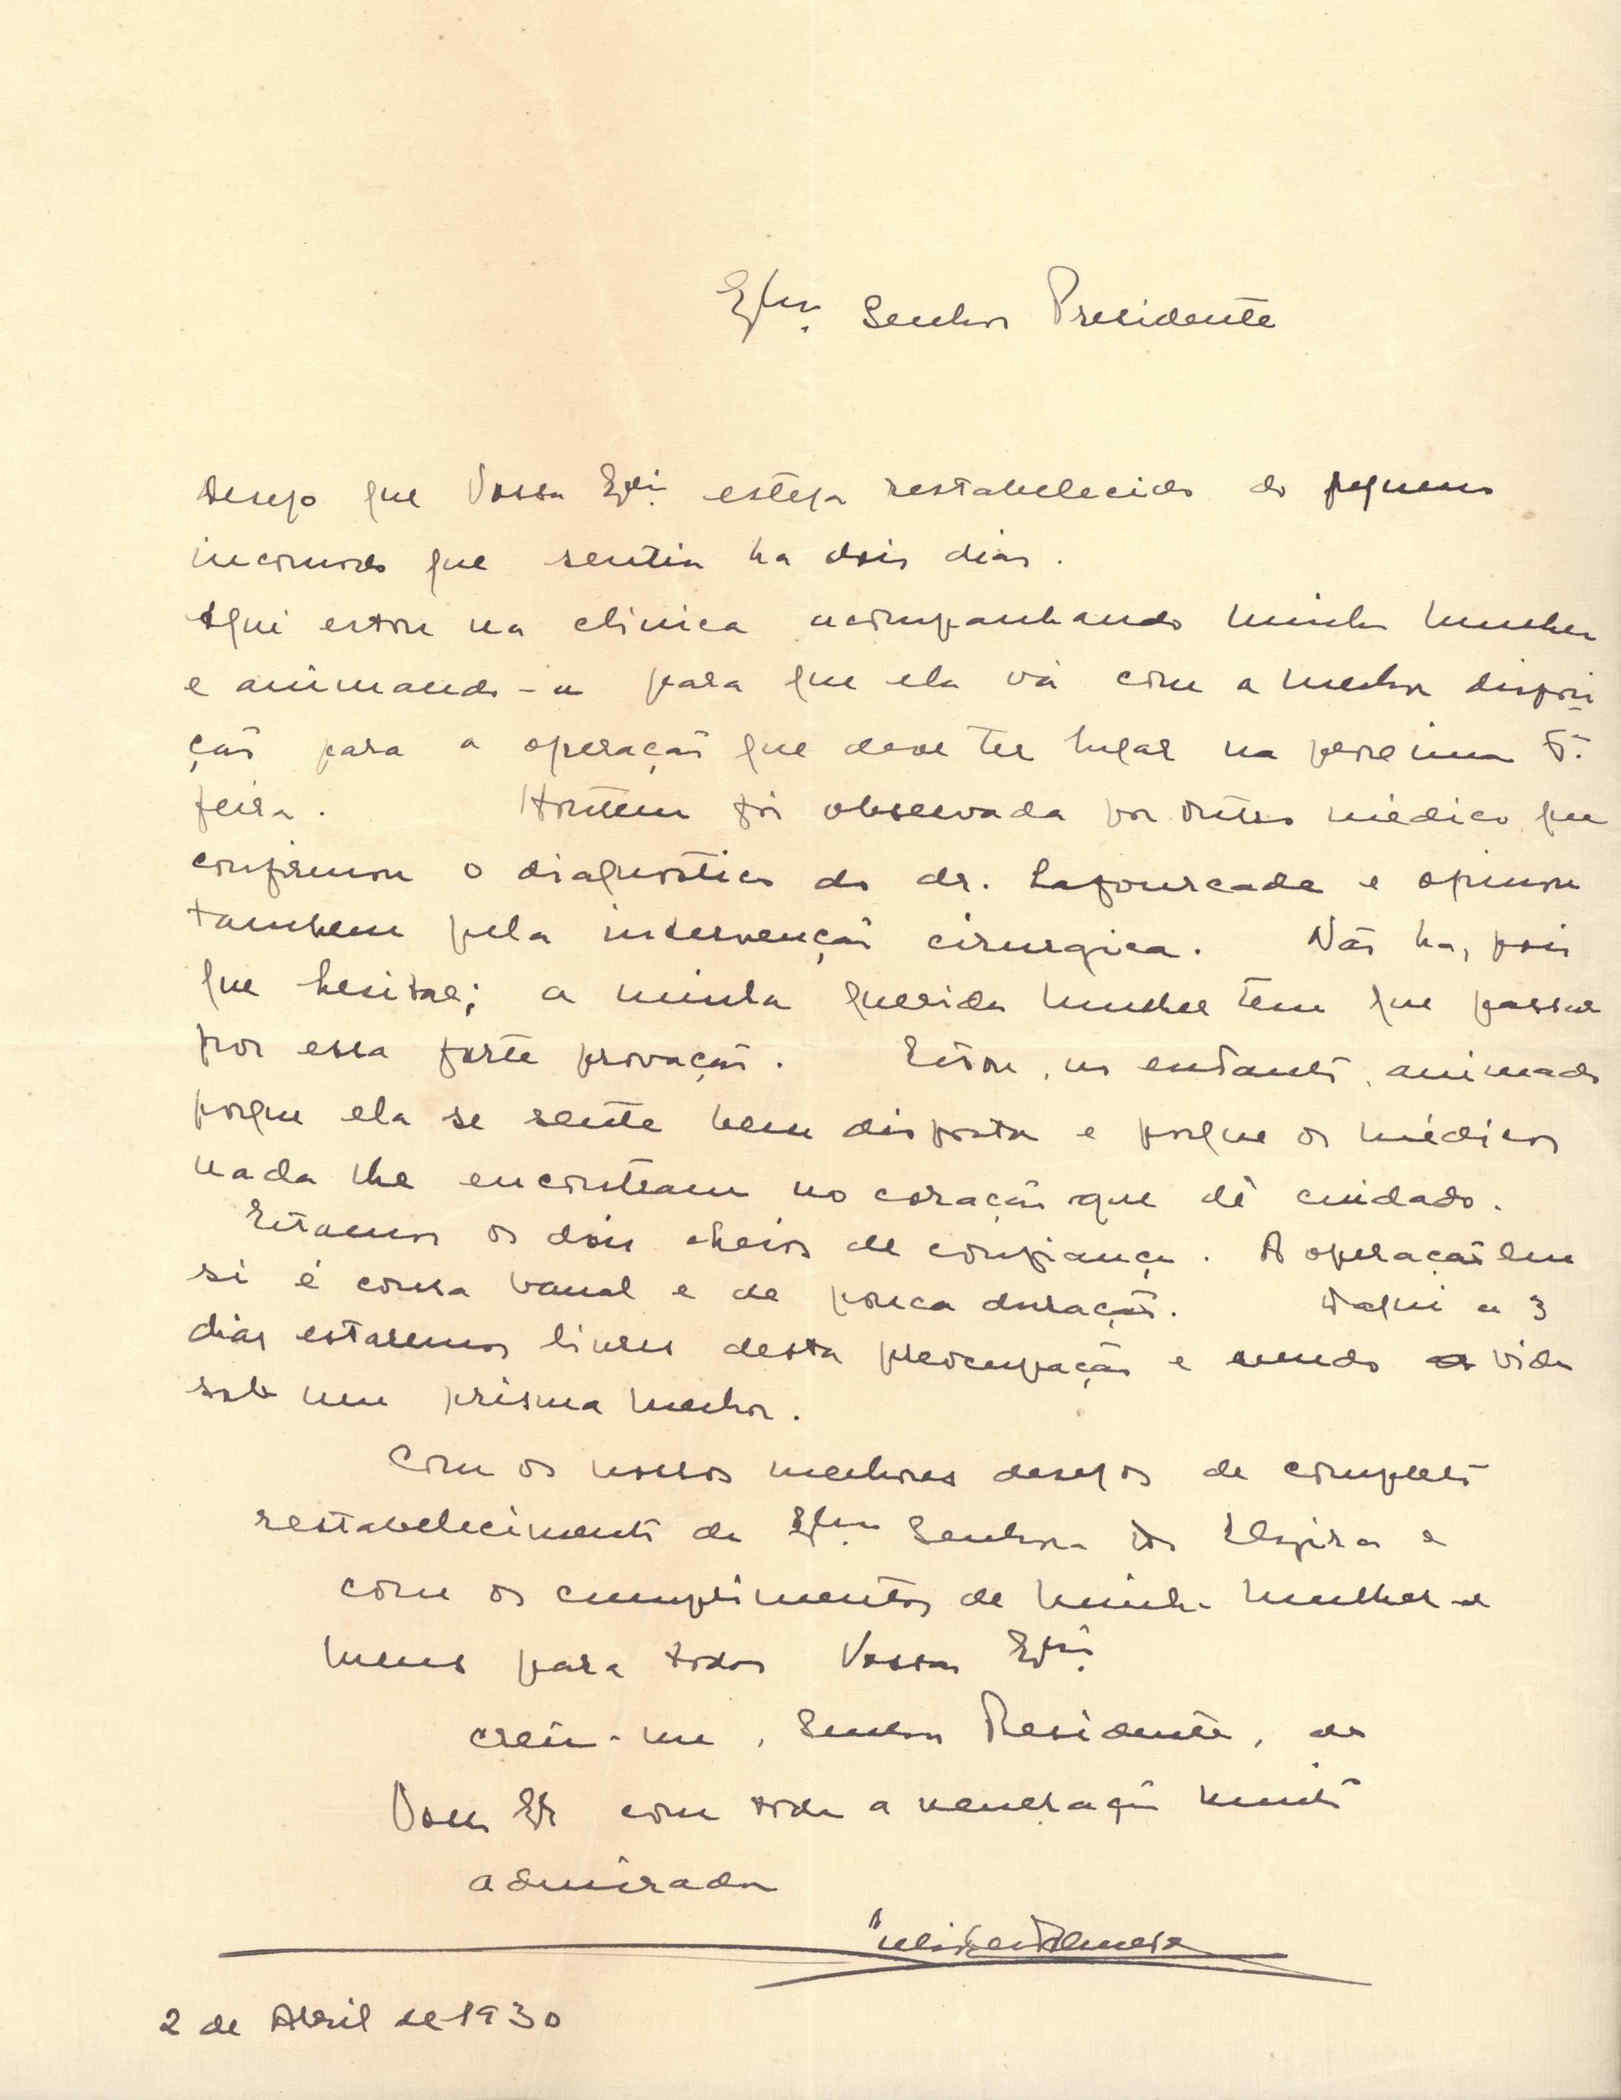 Exmo. Senhor Presidente
Desejo que Vossa Exia. esteja restabelecido do pequeno
incomodo que sentia ha dois dias.
Aqui estou na clinica acompanhando minha mulher
e animando-a para que ela vá com a melhor disposi
ção para a operação que deve ter lugar na proxima 6ª.
feira. Hontem foi observada por outro médico que
confirmou o diagnostico do dr. Lafourcade e opinou
tambem pela intervenção cirurgica. Não ha, pois
que hesitar; a minha querida mulher tem que passar
por essa forte provação. Estou, no entanto, animado
porque ela se sente bem disposta e porque os médicos
nada lhe encontram no coração que dê cuidado.
Estamos os dois cheios de confiança. A operação em
si é cousa banal e de pouca duração. Daqui a 3
dias estaremos livres desta preocupação e vendo a vida
sob um prisma melhor.
Com os nossos melhores desejos de completo
restabelecimento da Exma. Senhora D. Elzira e
com os cumprimentos de minha mulher e
meus para todos Vossas Exias.
creia-me, Senhor Presidente, de
Vossa Exa com toda a veneração muito
admirador
2 de Abril de 1930